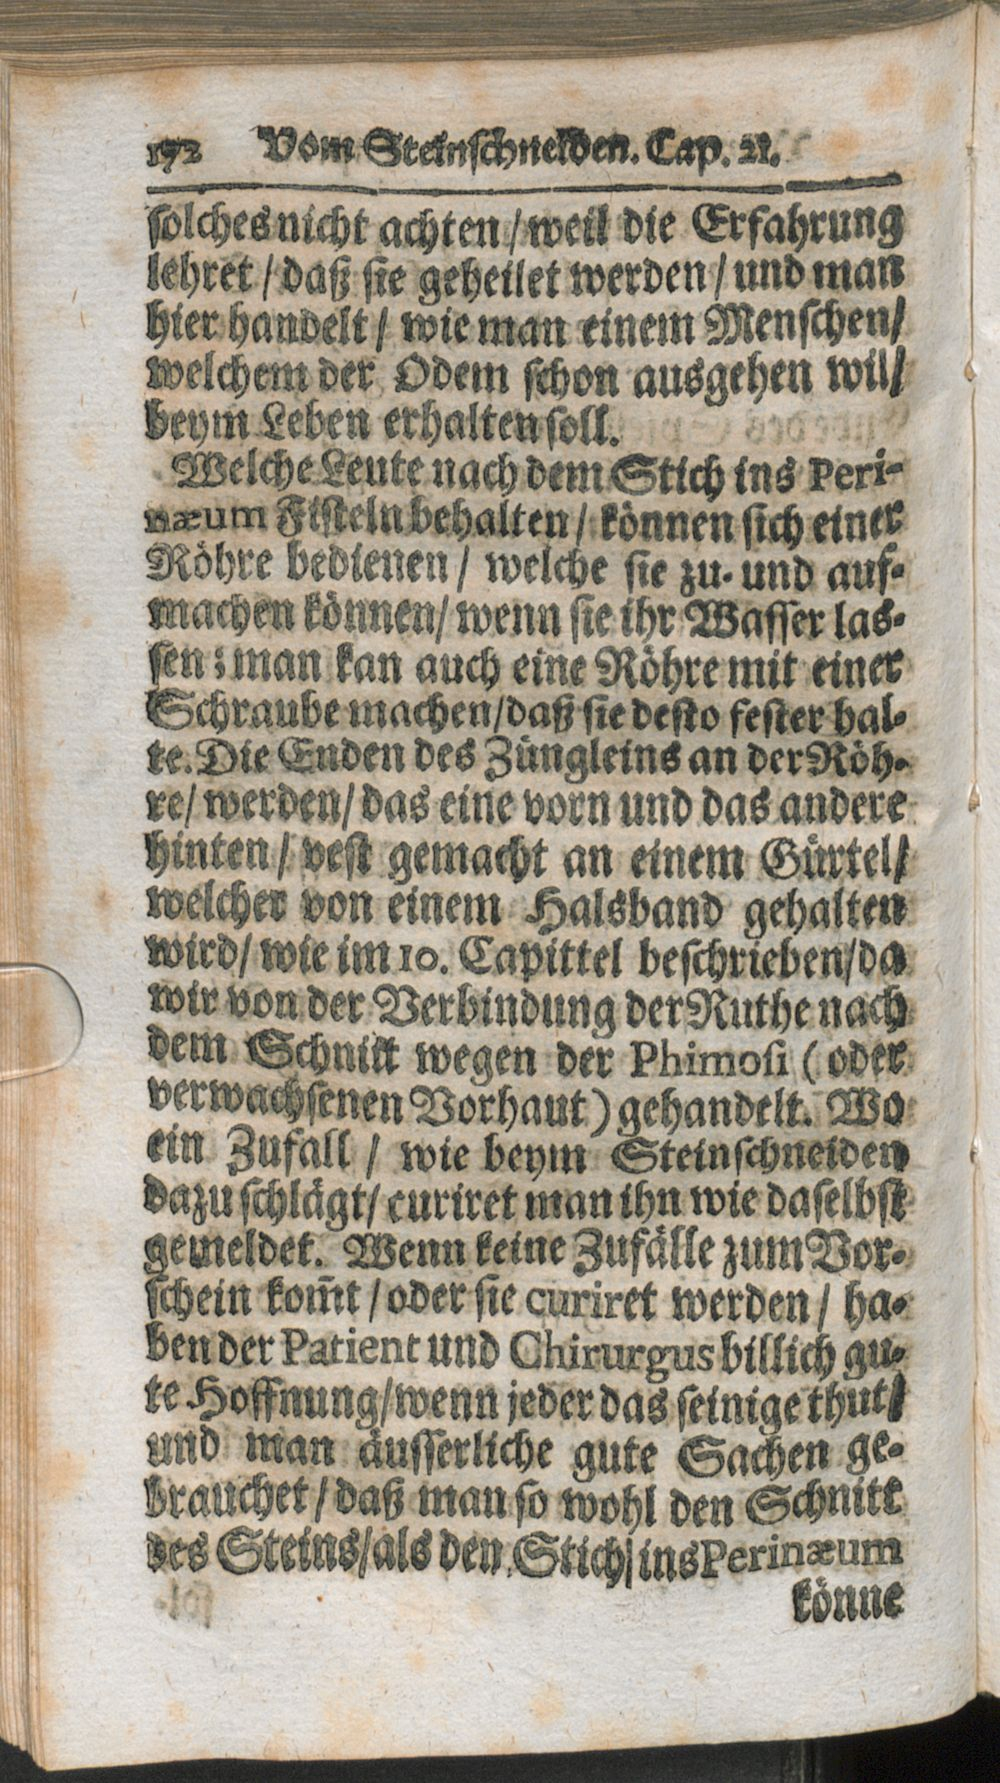 172 Vom Steinschneiden. Cap. 21.
solches nicht achten / weil die Erfahrung
lehret / daß sie geheilet werden / und man
hier handelt / wie man einem Menschen /
welchem der Odem schon ausgehen wil /
beym Leben erhalten soll.
Welche Leute nach dem Stich ins Peri-
næum Fisteln behalten / können sich einer
Röhre bedienen / welche sie zu- und auf-
machen können / wenn sie ihr Wasser las-
sen; man kan auch eine Röhre mit einer
Schraube machen / daß sie desto fester hal-
te. Die Enden des Züngleins an der Röh-
re / werden / das eine vorn und das andere
hinten / vest gemacht an einem Gürtel /
welcher von einem Halsband gehalten
wird / wie im 10. Capittel beschrieben / da
wir von der Verbindung der Ruthe nach
dem Schnitt wegen der Phimosi ( oder
verwachsenen Vorhaut ) gehandelt. Wo
ein Zufall / wie beym Steinschneiden
dazu schlägt / curiret man ihn wie daselbst
gemeldet. Wenn keine Zufälle zum Vor-
schein kom̄t / oder sie curiret werden / ha-
ben der Patient und Chirurgus billich gu-
te Hoffnung / wenn jeder das seinige thut /
und man äusserliche gute Sachen ge-
brauchet / daß man so wohl den Schnitt
des Steins / als den Stich ins Perinæum
könne